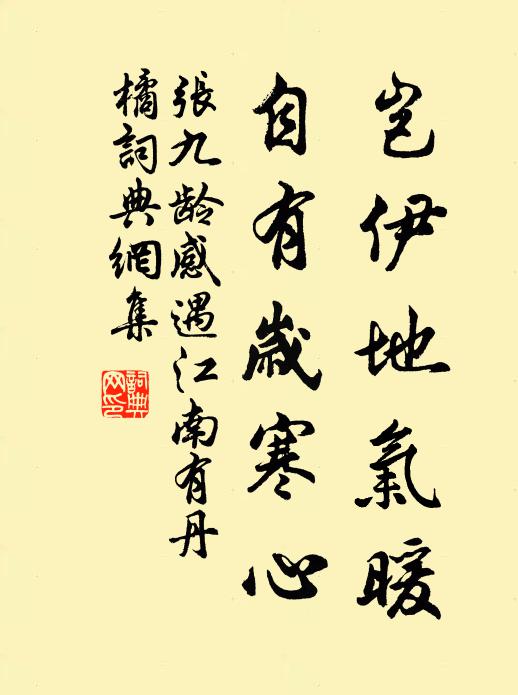 岂伊地氣暖
自有歲寒心
張九龄感遇江南有丹
橘詞典網集
詞典
网印